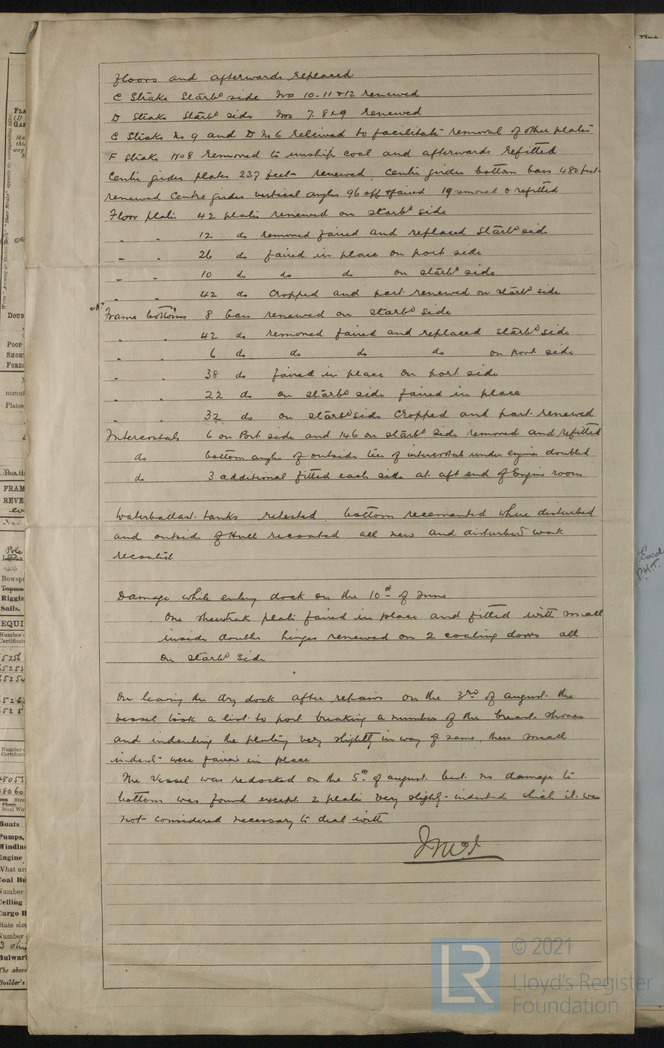 Floors and afterwards replaced
C Strake Starbd side Nos 10-11 & 12 renewed
D Strake Starbd side Nos 7. 8 & 9 renewed
C Strake No 9 and D No 6 released to facilitate removal of other plates
F Strake No 8 removed to unship coal and afterwards refitted
Centre girder plates 237 feet renewed Centre girder bottom bars 480 feet
renewed Centre girder vertical angles 96 off & faired 19 removed & refitted
Floor plates 42 plates renewed on starbd side
" " 12 do removed faired and replaced Starbd side
" " 26 do faired in place on port side
" " 10 do do do on starbd side
" " 42 do Cropped and part renewed on starbd side
Frame bottoms 8 bars renewed on starbd side
" " 42 do removed faired and replaced starbd side
" " 6 do do do do on port side
" " 38 do faired in place on port side
" " 22 do on starbd side faired in place
" " 32 do on starbd side Cropped and part renewed
Intercostals 6 on Port side and 146 on starbd side removed and refitted
do bottom angles of outside tier of intercostals under engine doubled
do 3 additional fitted each side at aft end of Engine room
Waterballast tanks retested bottom recemented where disturbed
and outside of Hull recoated all new and disturbed work
recoated
Damage while entering dock on the 10th of June
One sheerstrake plate faired in place and fitted with small
inside double hinges renewed on 2 coaling doors all
on starbd side
On leaving the dry dock after repairs on the 3rd of August the
vessel took a list to port breaking a number of the breast shores
and indenting the plating very slightly in way of same, these small
indents were faired in place
The Vessel was redocked on the 5th of August but no damage to
bottom was found except 2 plates very slightly indented which it was
not considered necessary to deal with
© 2021
LR
Lloyd's Register
Foundation